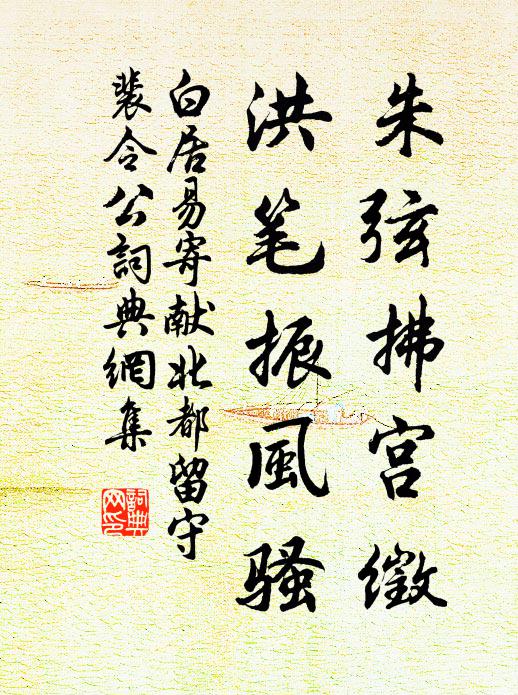 朱弦拂宫徵
洪笔振風骚
白居易寄献北都留守
裴令公詞典網集
詞典
网印